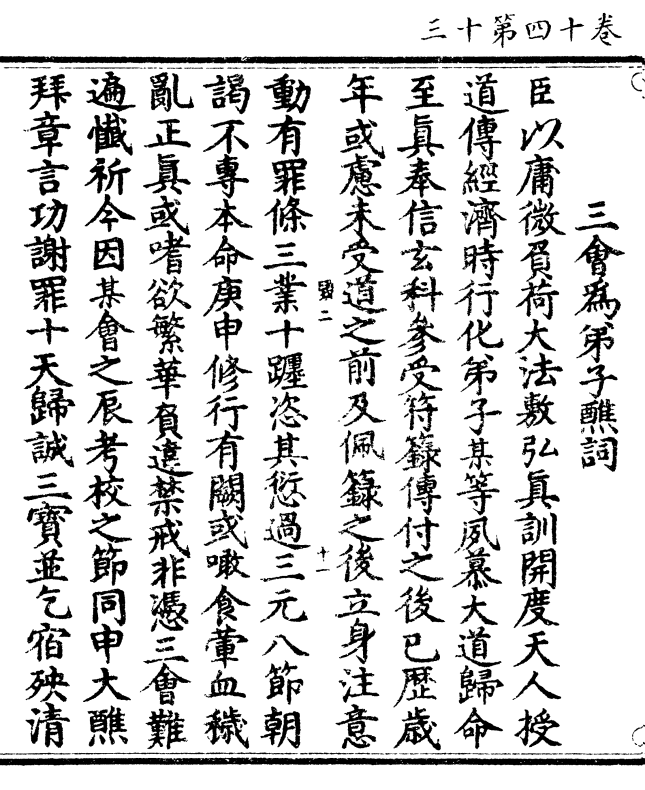 三十第四十卷
三會爲弟子醮詞
臣以庸微負荷大法敷弘真訓開度天人授
道傳經濟時行化弟子某等夙慕大道歸命
至真奉信玄科參受符籙傳付之後已歷歲
年或慮未受道之前及佩籙之後立身注意
二
十一
動有罪條三業十躔恣其愆過三元八節朝
謁不專本命庚申修行有闕或噉食葷血穢
亂正真或嗜欲繁華貪違禁戒非憑三會難
遍懺祈今因某會之辰考校之節同申大醮
拜章言功謝罪十天歸誠三寶並乞宿殃清